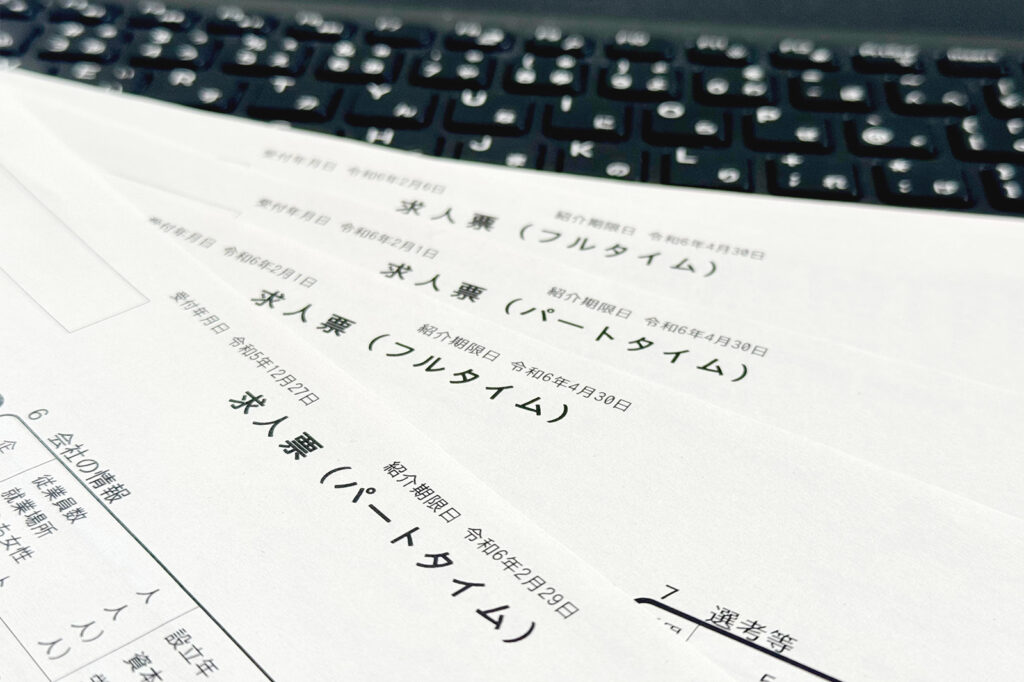 受付年月日 令和6年2月6日
紹介期限日 令和6年4月30日
求人票（フルタイム）
受付年月日 令和6年2月1日
紹介期限日 令和6年4月30日
求人票（パートタイム）
受付年月日 令和6年2月1日
紹介期限日 令和6年4月30日
求人票（フルタイム）
受付年月日 令和5年12月27日
紹介期限日 令和6年2月29日
求人票（パートタイム）
6 会社の情報
企
従業員数
就業場所
ち女性
人
人
人）
人）
設立年
資本
7 選考等
Y U I O P
H J K L